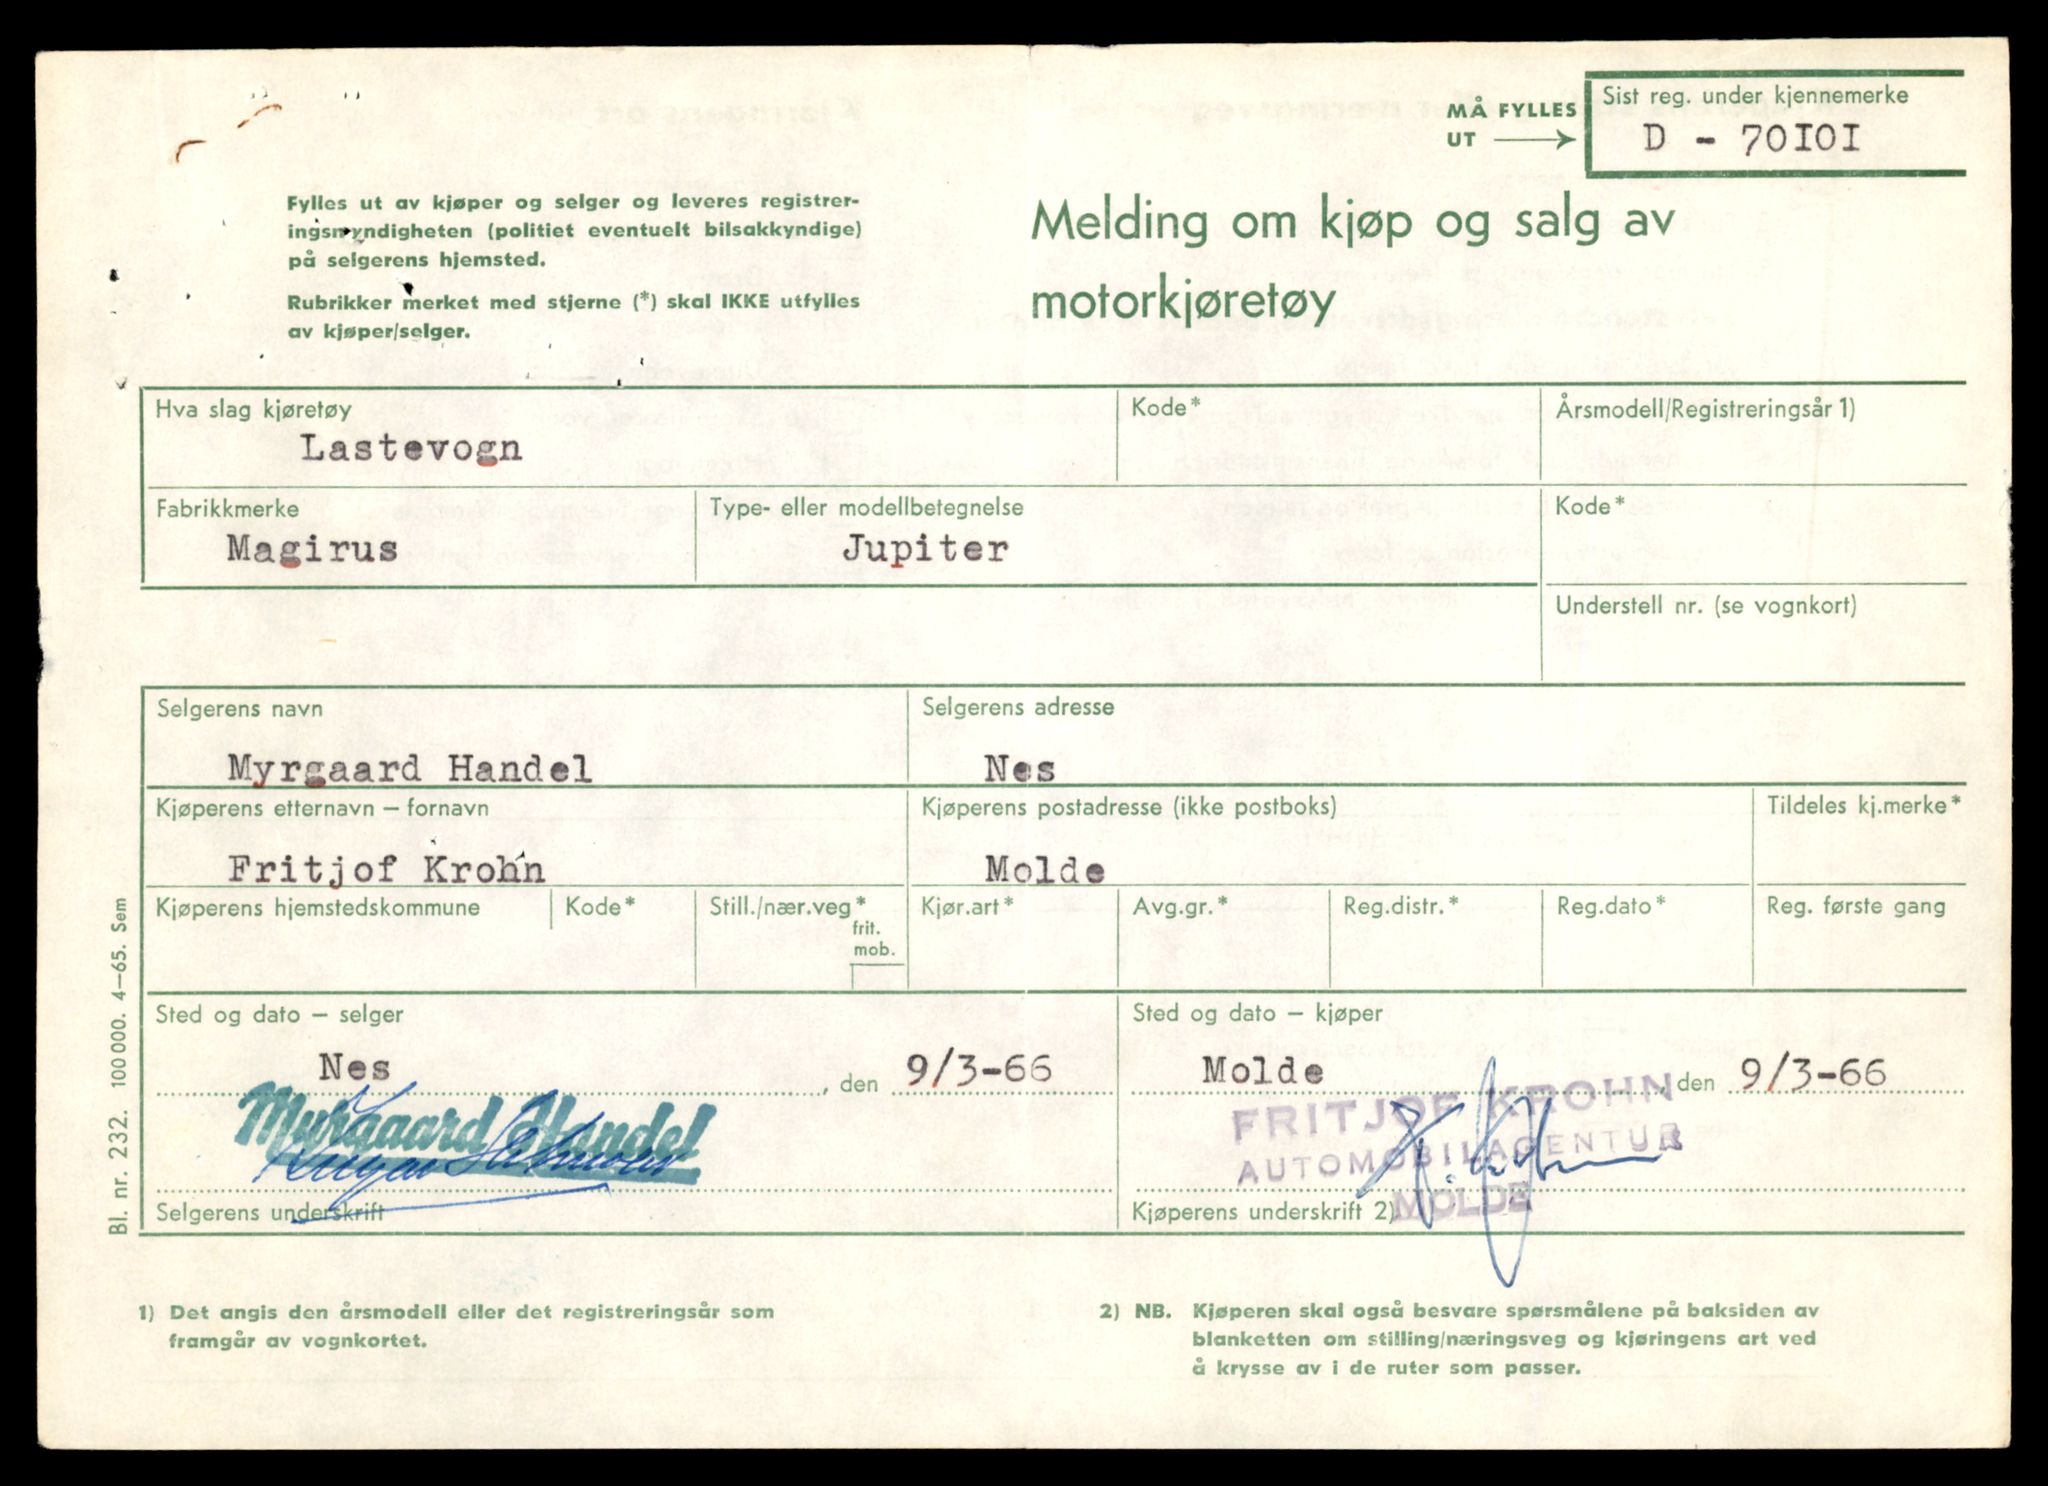 MÅ FYLLES
UT
Sist reg. under kjennemerke
D - 70I0I
Fylles ut av kjøper og selger og leveres registrer-
ingsmyndigheten (politiet eventuelt bilsakkyndige)
på selgerens hjemsted.
Rubrikker merket med stjerne (*) skal IKKE utfylles
av kjøper/selger.
Melding om kjøp og salg av
motorkjøretøy
Hva slag kjøretøy
Kode*
Årsmodell/Registreringsår 1)
Lastevogn
Fabrikkmerke
Type- eller modellbetegnelse
Kode*
Magirus
Jupiter
Understell nr. (se vognkort)
Selgerens navn
Selgerens adresse
Myrgaard Handel
Nes
Kjøperens etternavn – fornavn
Kjøperens postadresse (ikke postboks)
Tildeles kj.merke*
Fritjof Krohn
Molde
Kjøperens hjemstedskommune
Kode*
Still./nær.veg*
frit.
mob.
Kjør.art*
Avg.gr.*
Reg.distr.*
Reg.dato*
Reg. første gang
Sted og dato – selger
Sted og dato – kjøper
Nes , den 9/3-66
Molde , den 9/3-66
Myrgaard Handel
FRITJOF KROHN
AUTOMOBILAGENTUR
MOLDE
Selgerens underskrift
Kjøperens underskrift 2)
Bl. nr. 232. 100 000. 4–65. Sem
1) Det angis den årsmodell eller det registreringsår som
framgår av vognkortet.
2) NB. Kjøperen skal også besvare spørsmålene på baksiden av
blanketten om stilling/næringsveg og kjøringens art ved
å krysse av i de ruter som passer.